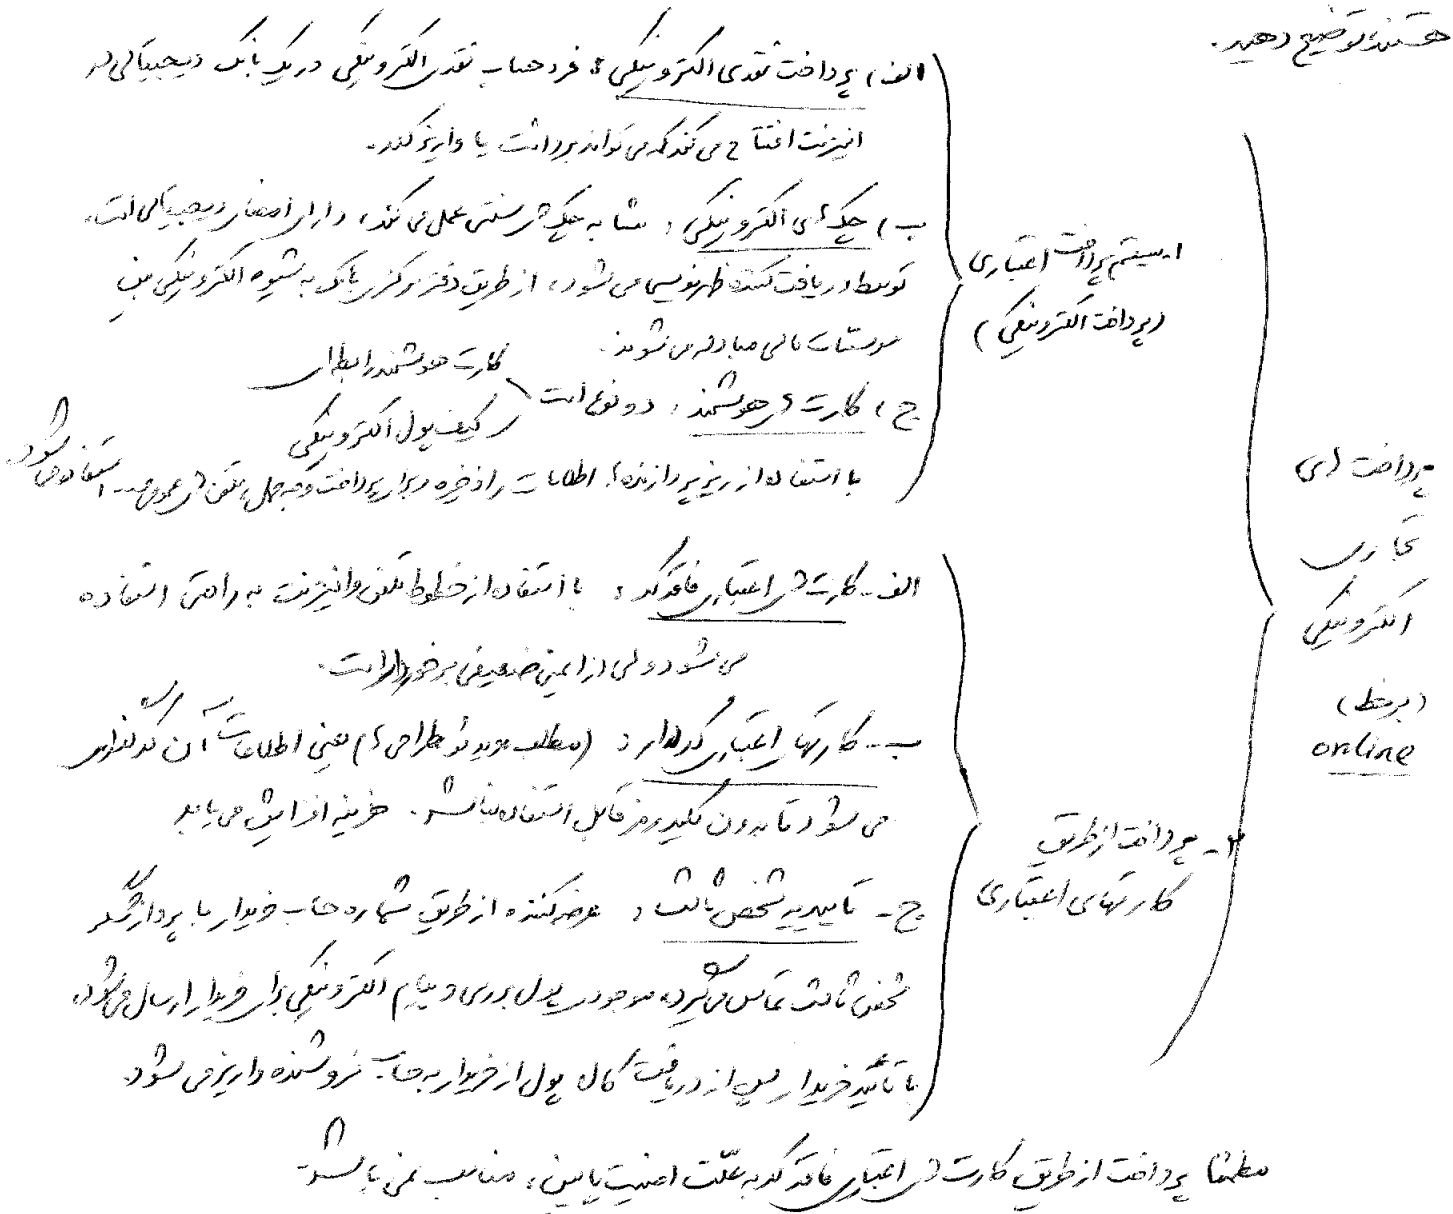 هستند، توضیح دهید.
پرداخت های
تجاری
الکترونیکی
(برخط)
online
۱- سیستم پرداخت اعتباری
(پرداخت الکترونیکی)
الف) پرداخت نقدی الکترونیکی: فرد حساب نقدی الکترونیکی در یک بانک دیجیتالی در
اینترنت افتتاح می کند که می تواند برداشت یا واریز کند.
ب) چک های الکترونیکی: مشابه چک های سنتی عمل می کند، دارای امضای دیجیتالی است.
توسط دریافت کننده ظهرنویسی می شود، از طریق دفتر مرکزی بانک به شیوه الکترونیکی بین
موسسات مالی مبادله می شوند.
ج) کارت های هوشمند: دو نوع است
کارت هوشمند رابطه ای
کیف پول الکترونیکی
با استفاده از ریزپردازنده ها اطلاعات را ذخیره و برای پرداخت وجه حمل، تلفن های عمومی استفاده می شود
۲- پرداخت از طریق
کارتهای اعتباری
الف- کارت های اعتباری فاقد کد: با استفاده از خطوط تلفن و اینترنت به راحتی استفاده
می شود ولی از ایمنی ضعیفی برخوردار است.
ب- کارتهای اعتباری کددار: یعنی اطلاعات آن کدگذاری
می شود تا بدون کلید رمز قابل استفاده نباشد. هزینه افزایش می یابد
ج- تاییدیه شخص ثالث: عرضه کننده از طریق شماره حساب خریدار با پردازشگر
شخص ثالث تماس می گیرد، موجودی پول بررسی و پیام الکترونیکی برای خریدار ارسال می شود،
با تأیید خریدار پس از دریافت کالا، پول از خریدار به حساب فروشنده واریز می شود.
مطمئنا پرداخت از طریق کارت های اعتباری فاقد کد به علّت امنیت پایین، مناسب نمی باشد.